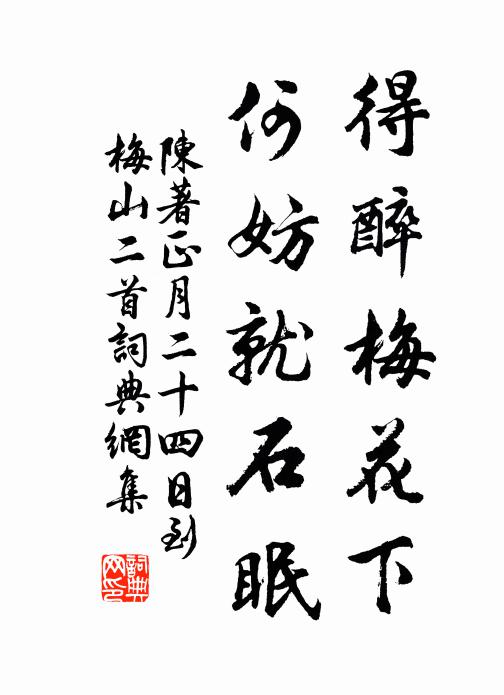 得醉梅花下
何妨就石眠
陳著正月二十四日到
梅山二首詞典網集
詞典
网印